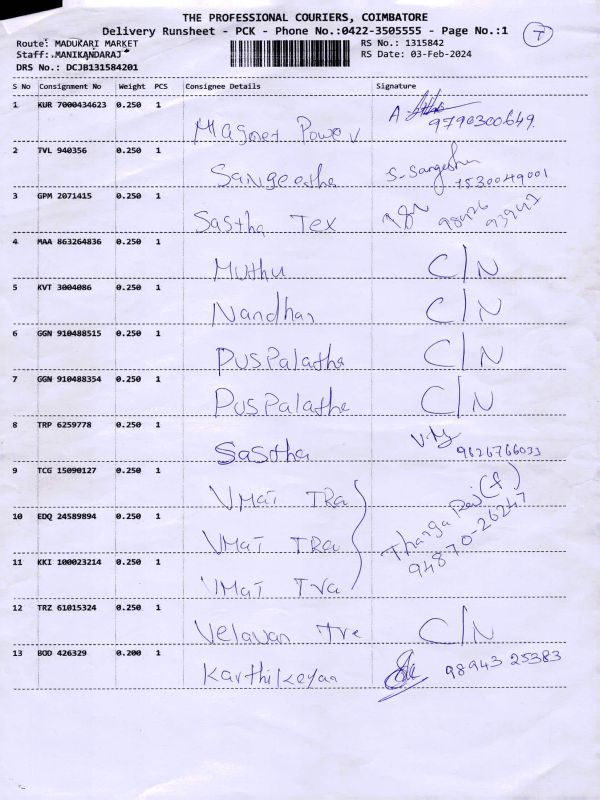 THE PROFESSIONAL COURIERS, COIMBATORE
Delivery Runsheet - PCK - Phone No.:0422-3505555 - Page No.:1
T
Route: MADUKARI MARKET
Staff: MANIKANDARAJ
DRS No.: DCJB131584201
RS No.: 1315842
RS Date: 03-Feb-2024
S No Consignment No Weight PCS Consignee Details Signature
1 KUR 7000434623 0.250 1 Magnet Power A 9790300649
2 TVL 940356 0.250 1 Sangeetha S-Sangeetha 7530049001
3 GPM 2071415 0.250 1 Sastha Tex
4 MAA 863264836 0.250 1 Muthu C/N
5 KVT 3004086 0.250 1 Nandhas C/N
6 GGN 910488515 0.250 1 PusPalatha C/N
7 GGN 910488354 0.250 1 PusPalatha C/N
8 TRP 6259778 0.250 1 Sastha 9626766033
9 TCG 15090127 0.250 1 VMai TRa
10 EDQ 24589894 0.250 1 VMai TRa Thanga Raj (f) 94870-26247
11 KKI 100023214 0.250 1 VMai Tra
12 TRZ 61015324 0.250 1 Velavan Tre C/N
13 BOD 426329 0.200 1 Karthikeyan 98943 25383